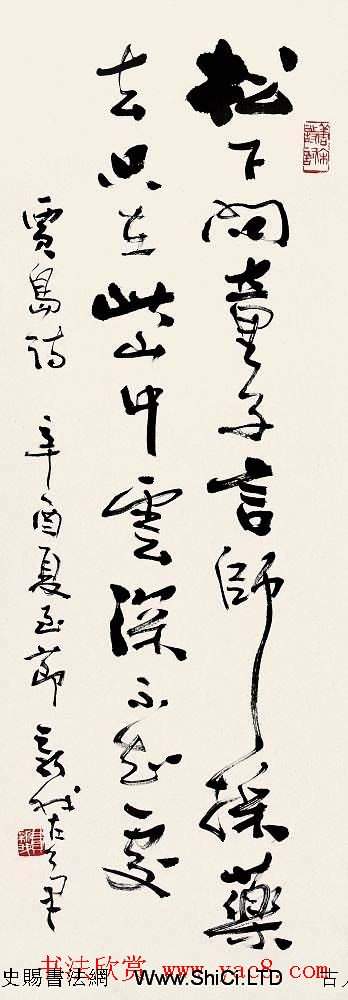 松下問童子言師採藥
去只在此山中雲深不知處
賈島詩 辛酉夏至節 新我左筆
书法欣赏 www.yac8.com
史賜書法網 www.ShiCi.LTD 古